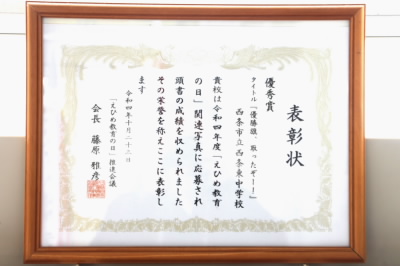 表彰状
優秀賞
タイトル「優勝旗、取ったぞー！」
西条市立西条東中学校
貴校は令和四年度『えひめ教育
の日』関連写真に応募され
頭書の成績を収められました
その栄誉を称えここに表彰し
ます
令和四年十月二十二日
「えひめ教育の日」推進会議
会長 藤原雅彦